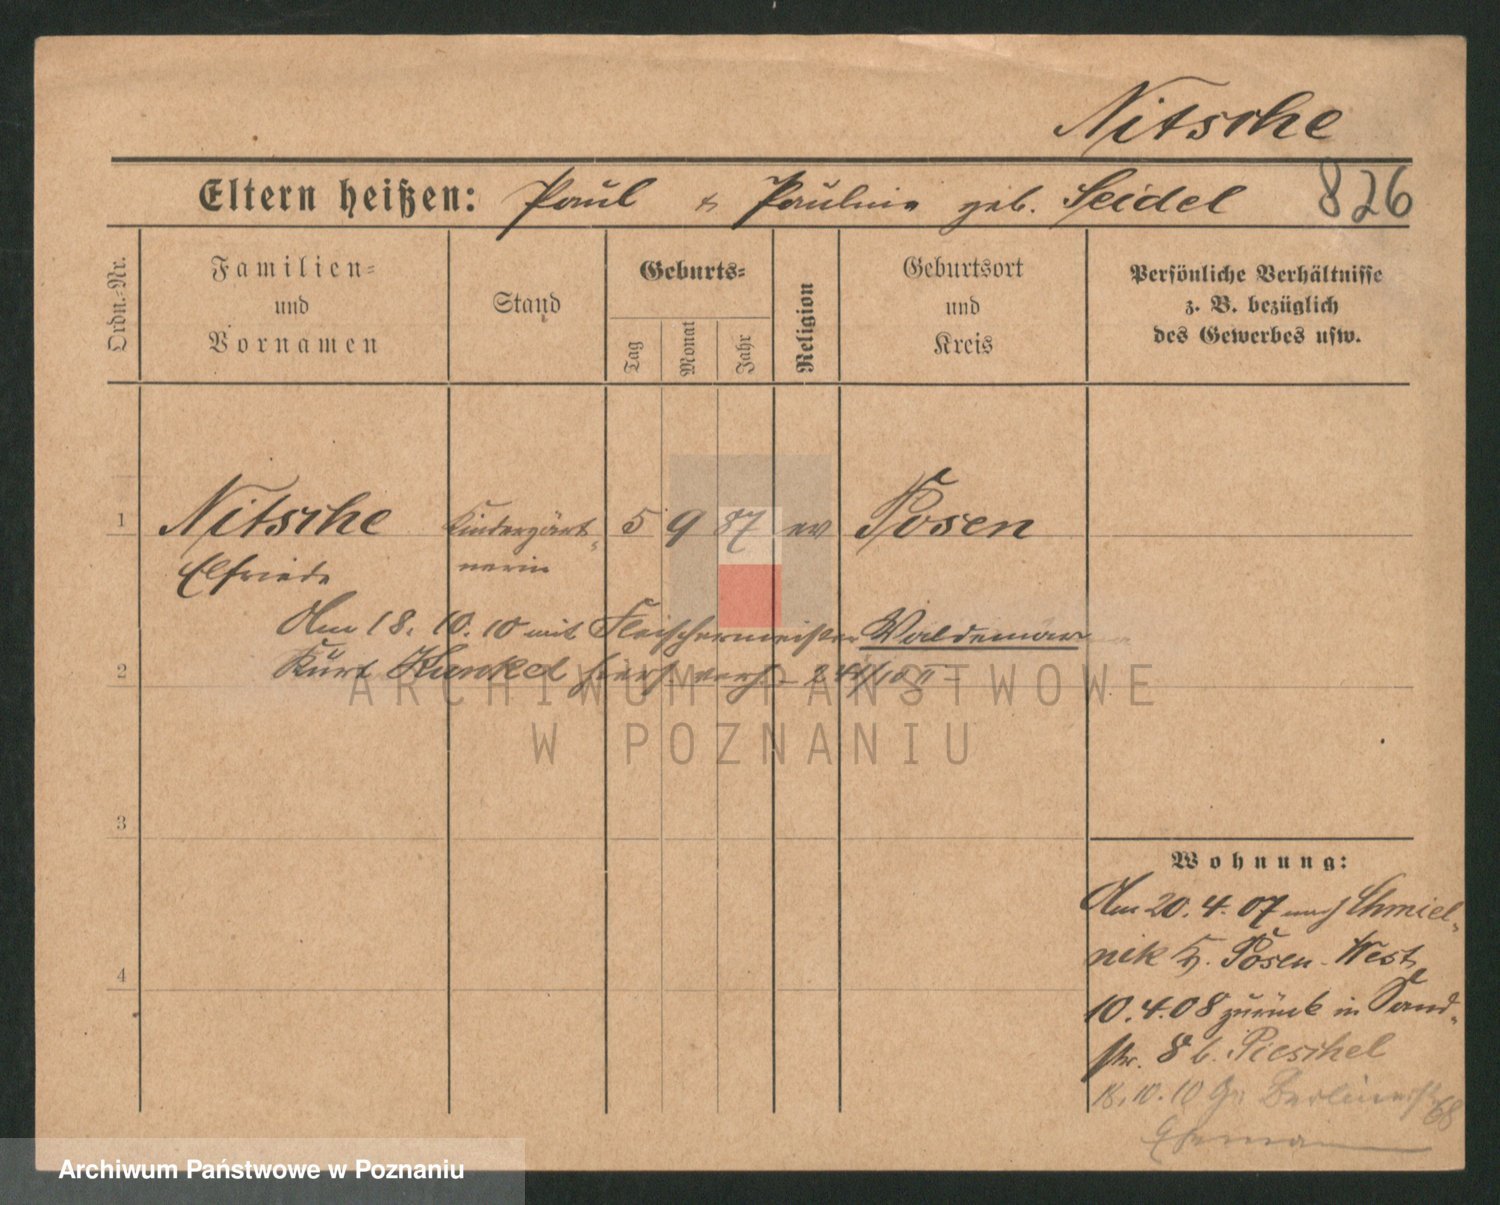 Nitsche
Eltern heißen: Paul & Pauline geb. Seidel 826
Ordn.-Nr.
Familien-
und
Vornamen
Stand
Geburts-
Tag
Monat
Jahr
Religion
Geburtsort
und
Kreis
Persönliche Verhältnisse
z. B. bezüglich
des Gewerbes usw.
1 Nitsche Kindergärt- 5 9 87 ev Posen
Elfriede nerin
Am 18. 10. 10 mit Fleischermeister Waldemar
2 Kurt Kunkel hier verh.
ARCHIWUM PAŃSTWOWE
W POZNANIU
3
Wohnung:
Am 20. 4. 07 nach Chmiel-
nik Kr. Posen-West
4
10. 4. 08 zurück in Sand-
str. 8 b. Pieschel
18. 10. 10 Gr. Berlinerstr 68
Ehemann
Archiwum Państwowe w Poznaniu